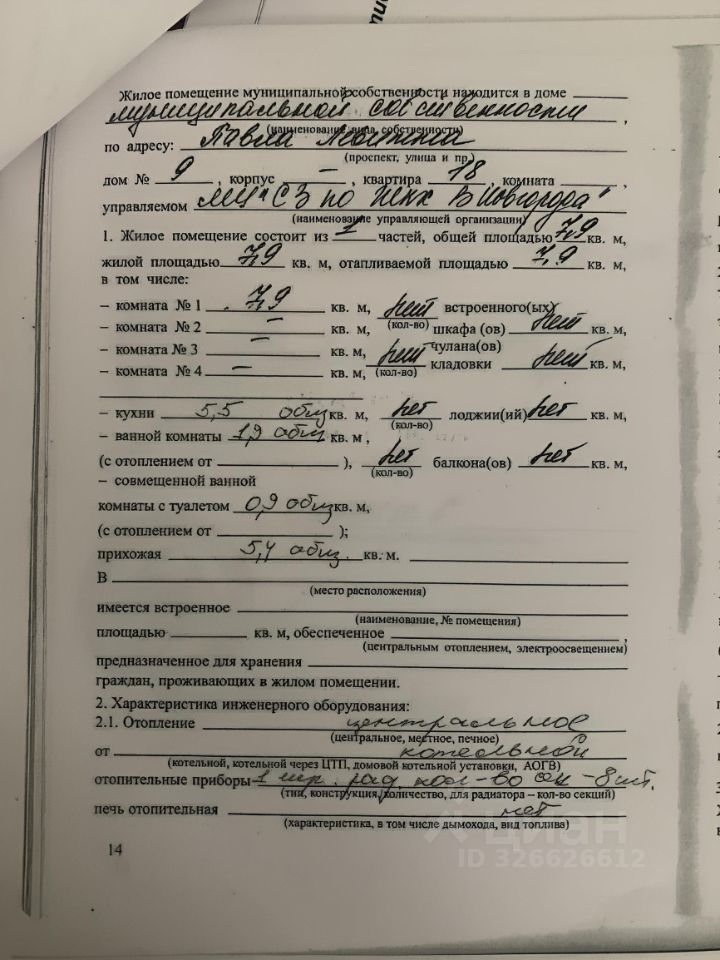 Жилое помещение муниципальной собственности находится в доме
муниципальной собственности,
(наименование вида собственности)
по адресу: Павла Левитта
(проспект, улица и пр.)
дом № 9, корпус –, квартира 18, комната ,
управляемом МУ "СЗ по ЖКХ В Новгорода"
(наименование управляющей организации)
1. Жилое помещение состоит из 1 частей, общей площадью 7,9 кв. м,
жилой площадью 7,9 кв. м, отапливаемой площадью 7,9 кв. м,
в том числе:
– комната № 1 7,9 кв. м, нет встроенного(ых)
– комната № 2 – кв. м, (кол-во) шкафа (ов) нет кв. м,
– комната № 3 – кв. м, нет чулана(ов)
– комната № 4 – кв. м, (кол-во) кладовки нет кв. м,
– кухни 5,5 общ кв. м, нет лоджии(ий) нет кв. м,
(кол-во)
– ванной комнаты 1,9 общ кв. м,
(с отоплением от ), нет балкона(ов) нет кв. м,
(кол-во)
– совмещенной ванной
комнаты с туалетом 0,9 общ кв. м,
(с отоплением от );
прихожая 5,4 общ. кв. м.
В
(место расположения)
имеется встроенное
(наименование, № помещения)
площадью кв. м, обеспеченное ,
(центральным отоплением, электроосвещением)
предназначенное для хранения
граждан, проживающих в жилом помещении.
2. Характеристика инженерного оборудования:
2.1. Отопление центральное
(центральное, местное, печное)
от котельной
(котельной, котельной через ЦТП, домовой котельной установки, АОГВ)
отопительные приборы 1 рад. кол-во сек – 8 шт.
(тип, конструкция, количество, для радиатора – кол-во секций)
печь отопительная нет
(характеристика, в том числе дымохода, вид топлива)
14
циан
ID 326626612